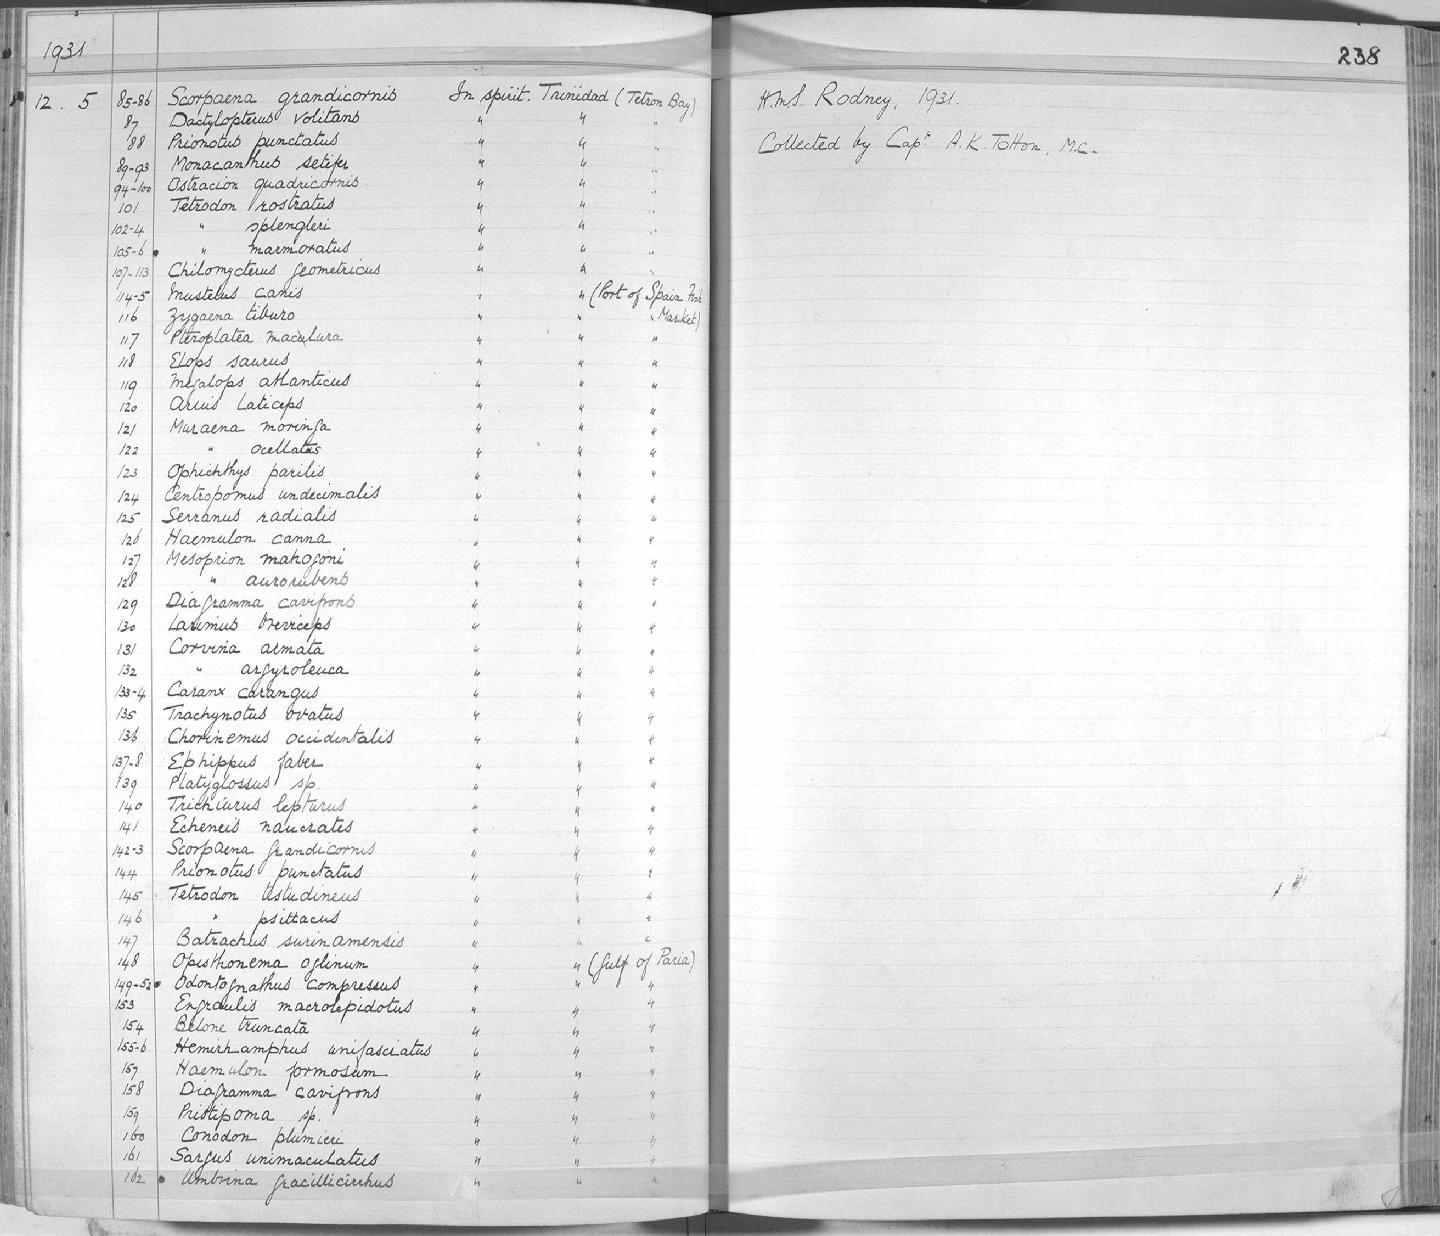 1931
238
12.5 85-86 Scorpaena grandicornis In spirit. Trinidad (Tetron Bay) H.M.S. Rodney, 1931.
87 Dactylopterus volitans " " "
88 Prionotus punctatus " " " Collected by Capt. A.K. Totton, M.C.
89-93 Monacanthus setifer " " "
94-100 Ostracion quadricornis " " "
101 Tetrodon rostratus " " "
102-4 " splengleri " " "
105-6 " marmoratus " " "
107-113 Chilomycterus geometricus " " "
114-5 Mustelus canis " " (Port of Spain Fish
116 Zygaena tiburo " " " Market)
117 Pteroplatea maculura " " "
118 Elops saurus " " "
119 Megalops atlanticus " " "
120 Arius laticeps " " "
121 Muraena moringa " " "
122 " ocellatus " " "
123 Ophichthys parilis " " "
124 Centropomus undecimalis " " "
125 Serranus radialis " " "
126 Haemulon canna " " "
127 Mesoprion mahogoni " " "
128 " aurorubens " " "
129 Diagramma cavifrons " " "
130 Larimus breviceps " " "
131 Corvina armata " " "
132 " argyroleuca " " "
133-4 Caranx carangus " " "
135 Trachynotus ovatus " " "
136 Chorinemus occidentalis " " "
137-8 Ephippus faber " " "
139 Platyglossus sp. " " "
140 Trichiurus lepturus " " "
141 Echeneis naucrates " " "
142-3 Scorpaena grandicornis " " "
144 Prionotus punctatus " " "
145 Tetrodon testudineus " " "
146 " psittacus " " "
147 Batrachus surinamensis " " "
148 Opisthonema oglinum " " (Gulf of Paria)
149-52 Odontognathus compressus " " "
153 Engraulis macrolepidotus " " "
154 Belone truncata " " "
155-6 Hemirhamphus unifasciatus " " "
157 Haemulon formosum " " "
158 Diagramma cavifrons " " "
159 Pristipoma sp. " " "
160 Conodon plumieri " " "
161 Sargus unimaculatus " " "
162 Umbrina gracillicirrhus " " "